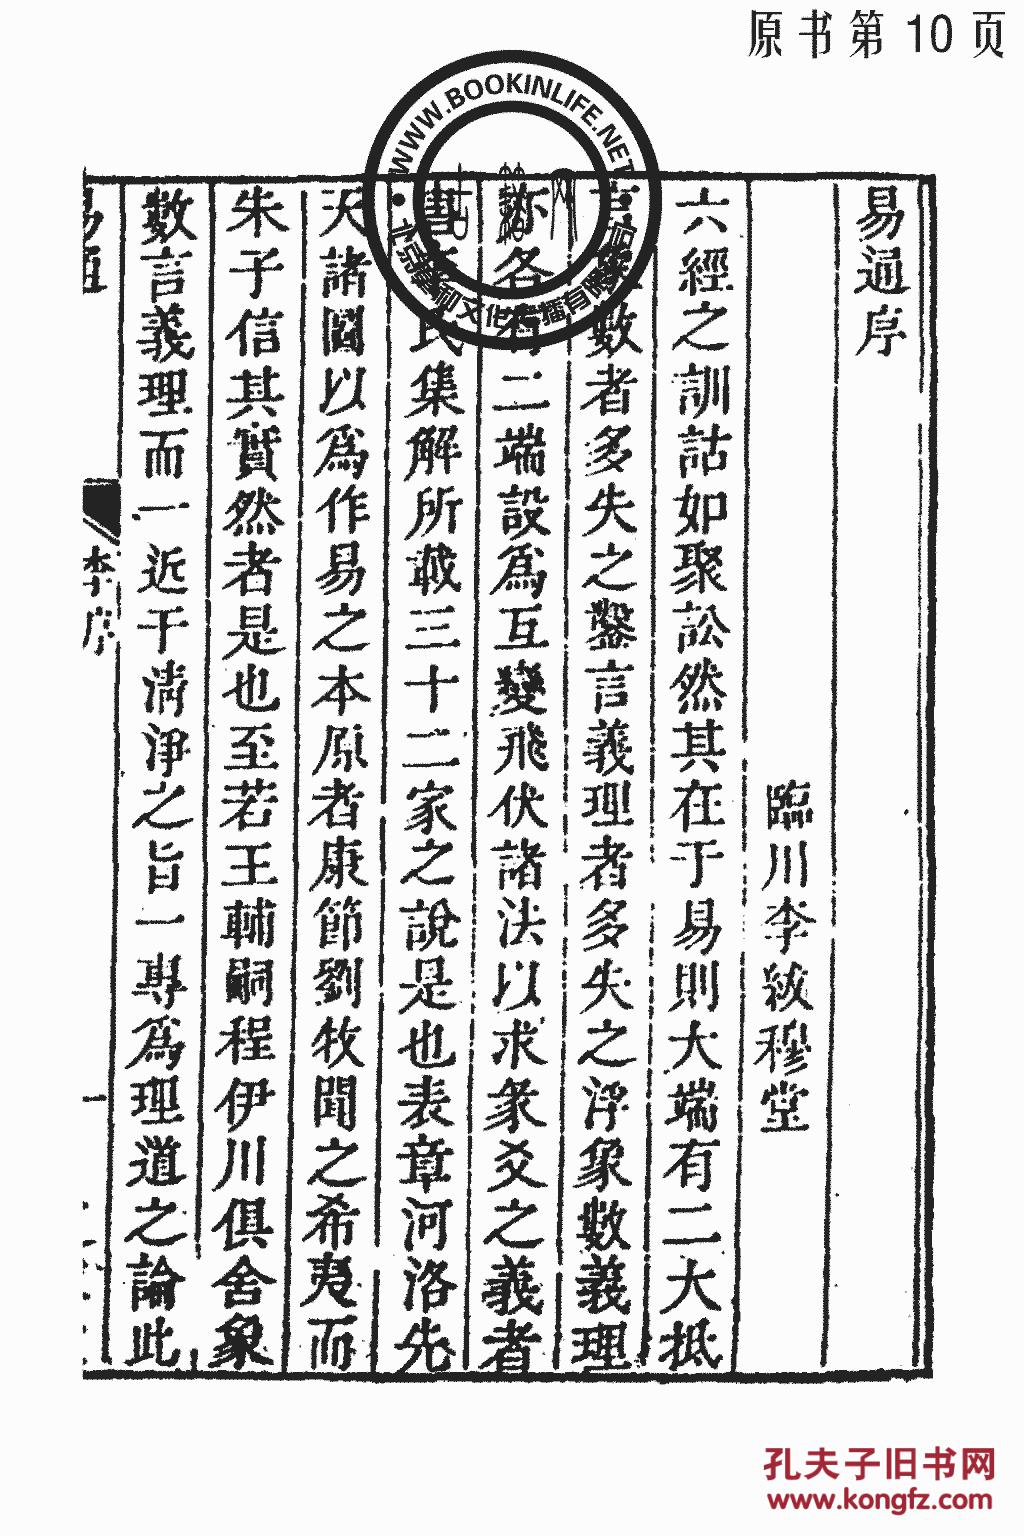 原书第10页
WWW.BOOKINLIFE.NET
易通序
臨川李紱穆堂
六經之訓詁如聚訟然其在于易則大端有二大抵
數者多失之鑿言義理者多失之浮象數義理
亦各有二端設爲互變飛伏諸法以求彖爻之義者
氏集解所載三十二家之說是也表章河洛先
天諸圖以爲作易之本原者康節劉牧聞之希夷而
朱子信其實然者是也至若王輔嗣程伊川俱舍象
數言義理而一近于清淨之旨一專爲理道之論此
李序
一
孔夫子旧书网
www.kongfz.com